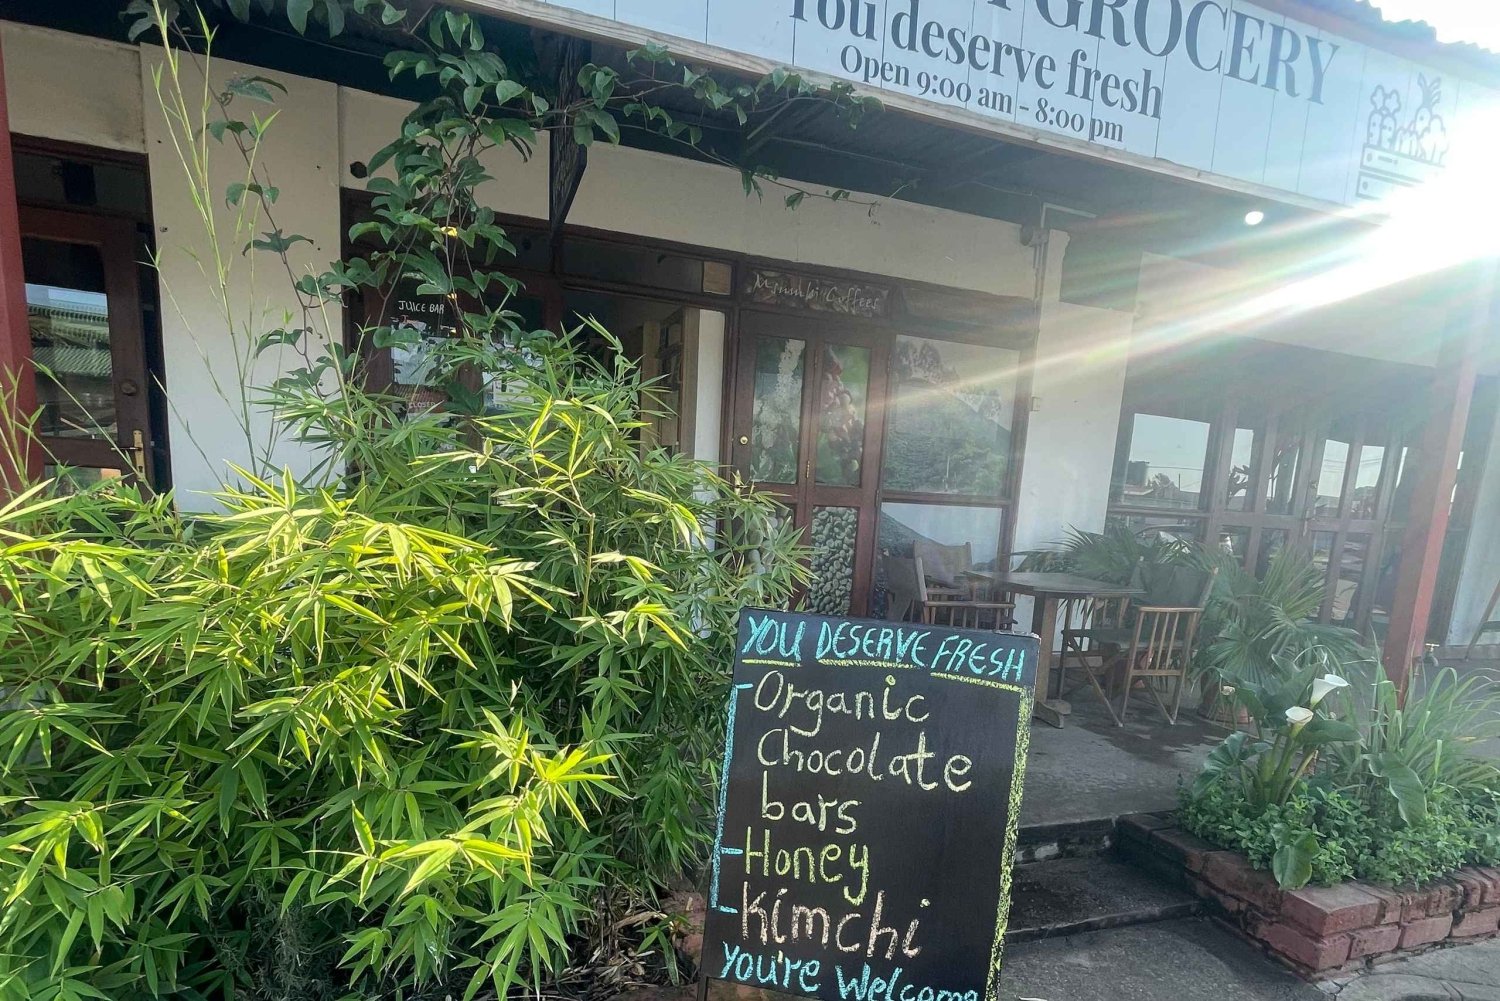 GROCERY
You deserve fresh
Open 9:00 am - 8:00 pm
Coffees
JUICE BAR
CLOSED
YOU DESERVE FRESH
Organic
Chocolate
bars
Honey
Kimchi
You're Welcome